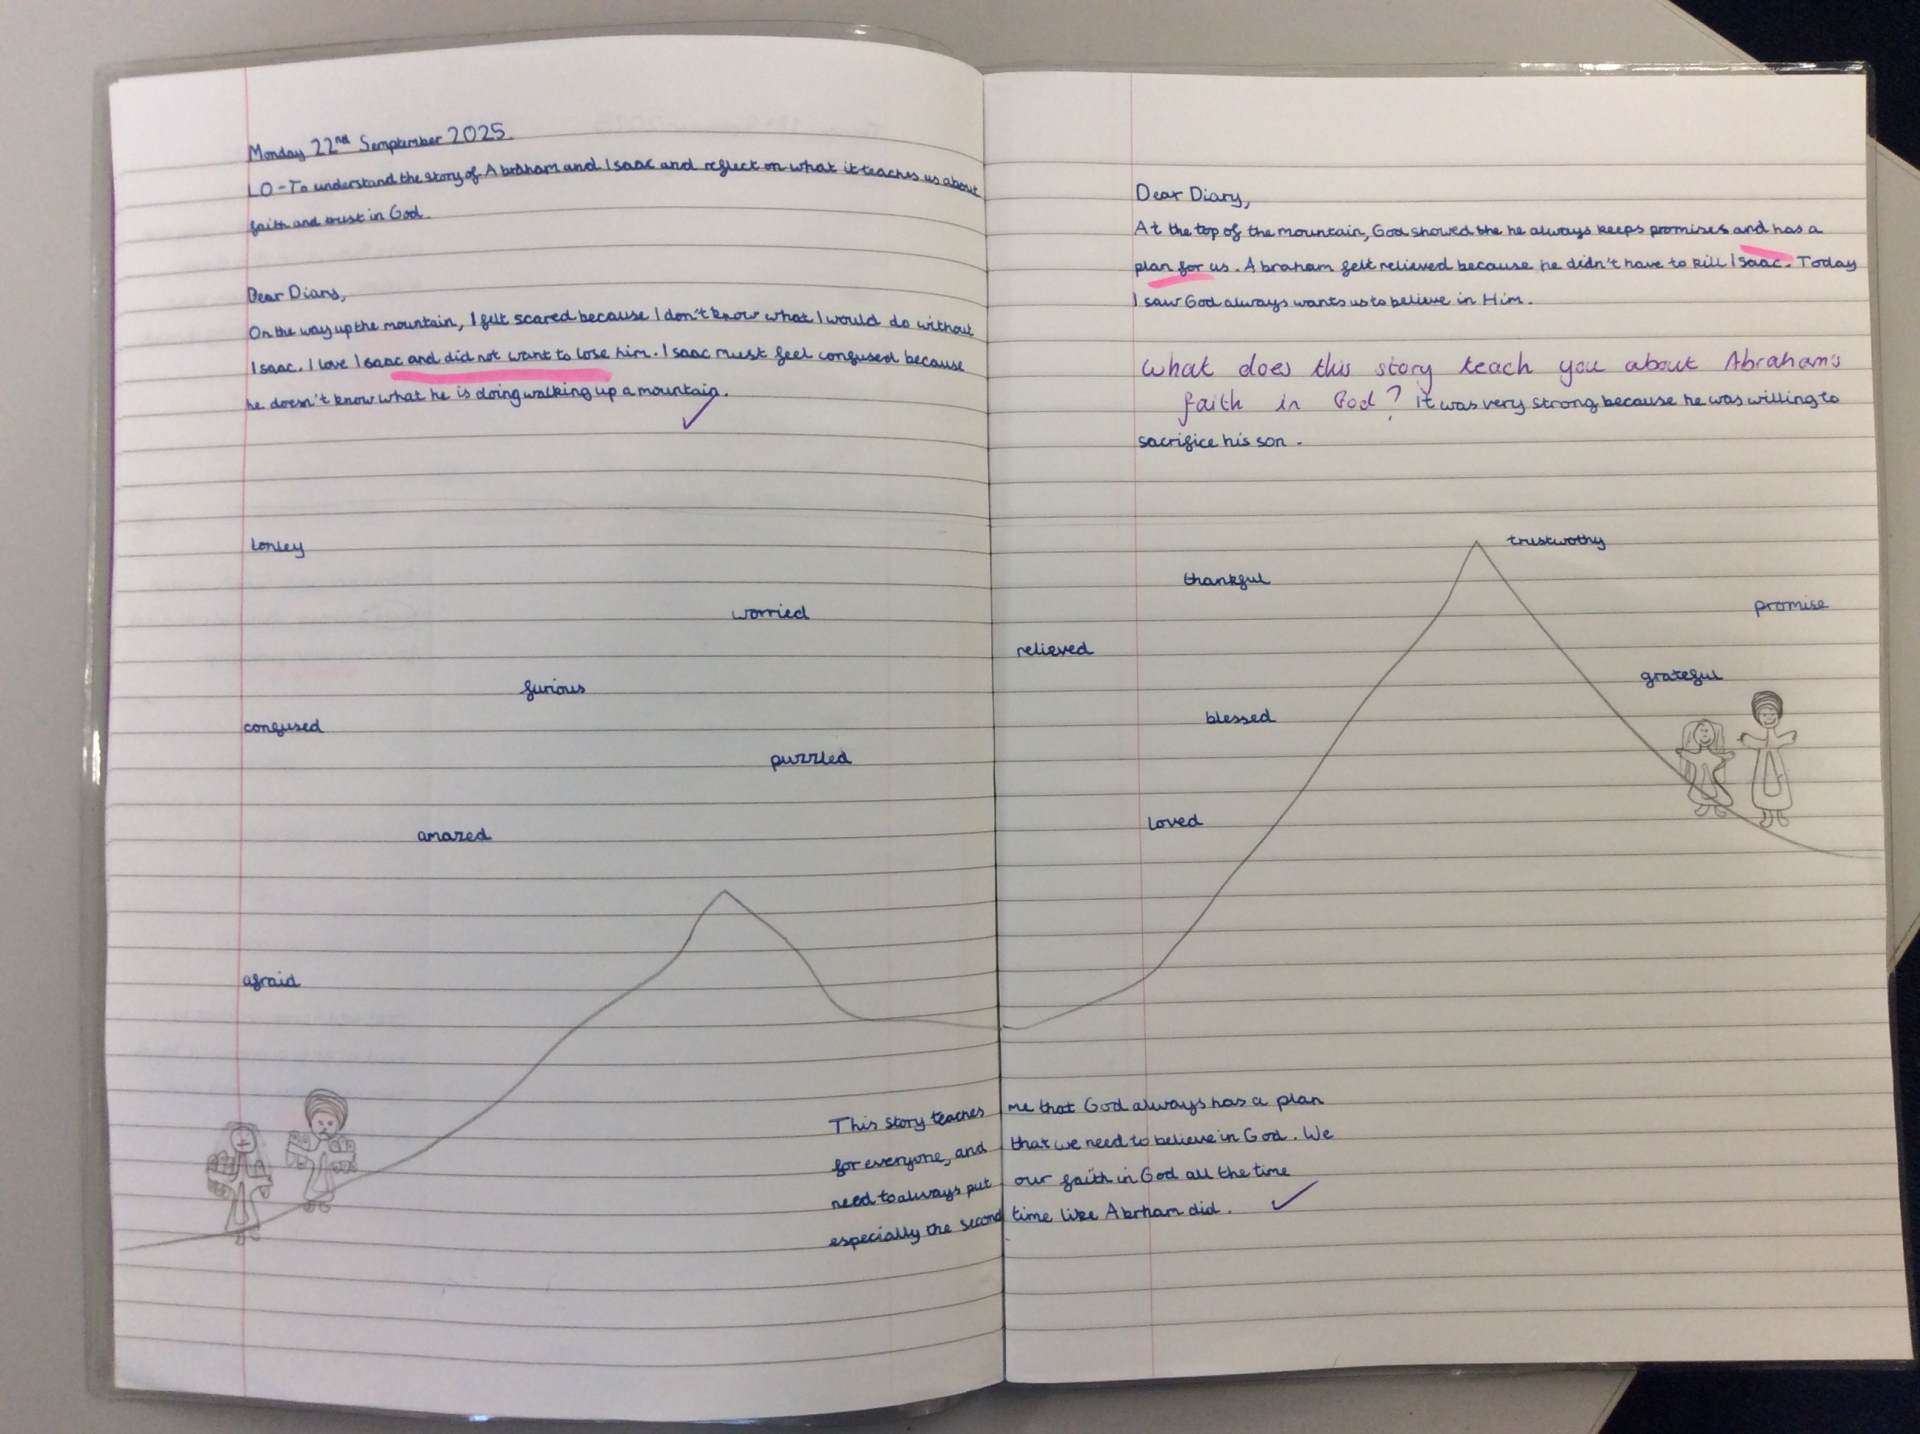 Monday 22nd Semptember 2025.
LO-To understand the story of Abraham and Isaac and reflect on what it teaches us about
faith and trust in God.
Dear Diary,
On the way up the mountain, I felt scared because I don't know what I would do without
Isaac. I love Isaac and did not want to lose him. Isaac must feel confused because
he doesn't know what he is doing walking up a mountain.
lonley
worried
furious
confused
puzzled
amazed
afraid
Dear Diary,
At the top of the mountain, God showed the he always keeps promises and has a
plan for us. Abraham felt relieved because he didn't have to kill Isaac. Today
I saw God always wants us to believe in Him.
What does this story teach you about Abraham's
faith in God? It was very strong because he was willing to
sacrifice his son.
trustworthy
thankful
promise
relieved
grateful
blessed
loved
This story teaches me that God always has a plan
for everyone, and that we need to believe in God. We
need to always put our faith in God all the time
especially the second time like Abrham did.